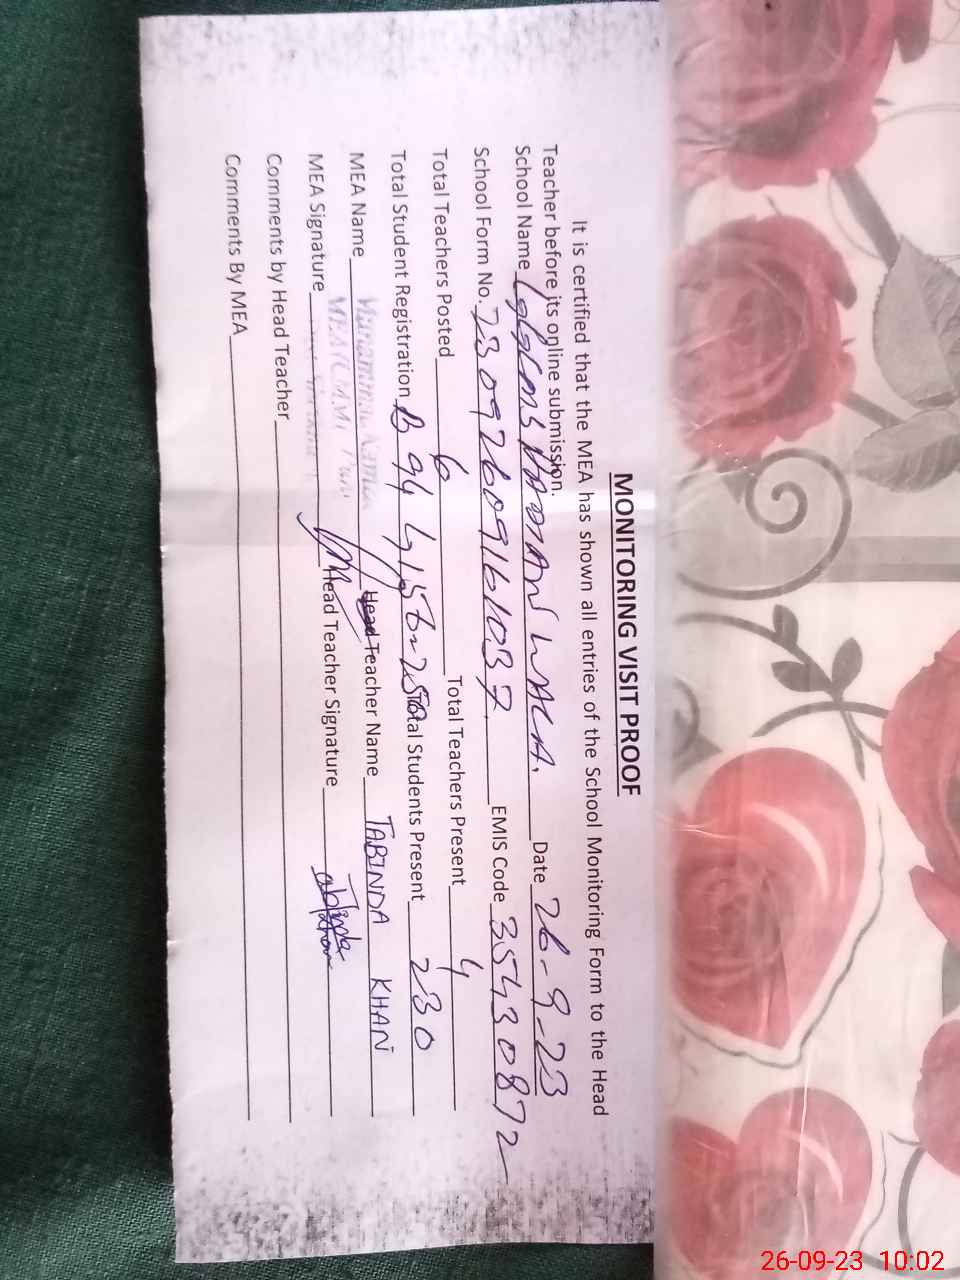 MONITORING VISIT PROOF
It is certified that the MEA has shown all entries of the School Monitoring Form to the Head
Teacher before its online submission.
School Name Date 26-9-23
School Form No. 23092609161037 EMIS Code 35430872
Total Teachers Posted 6 Total Teachers Present 4
Total Student Registration B 94 G 156=250 Total Students Present 230
MEA Name Head Teacher Name TABINDA KHAN
MEA Signature Head Teacher Signature
Comments by Head Teacher
Comments By MEA
26-09-23 10:02